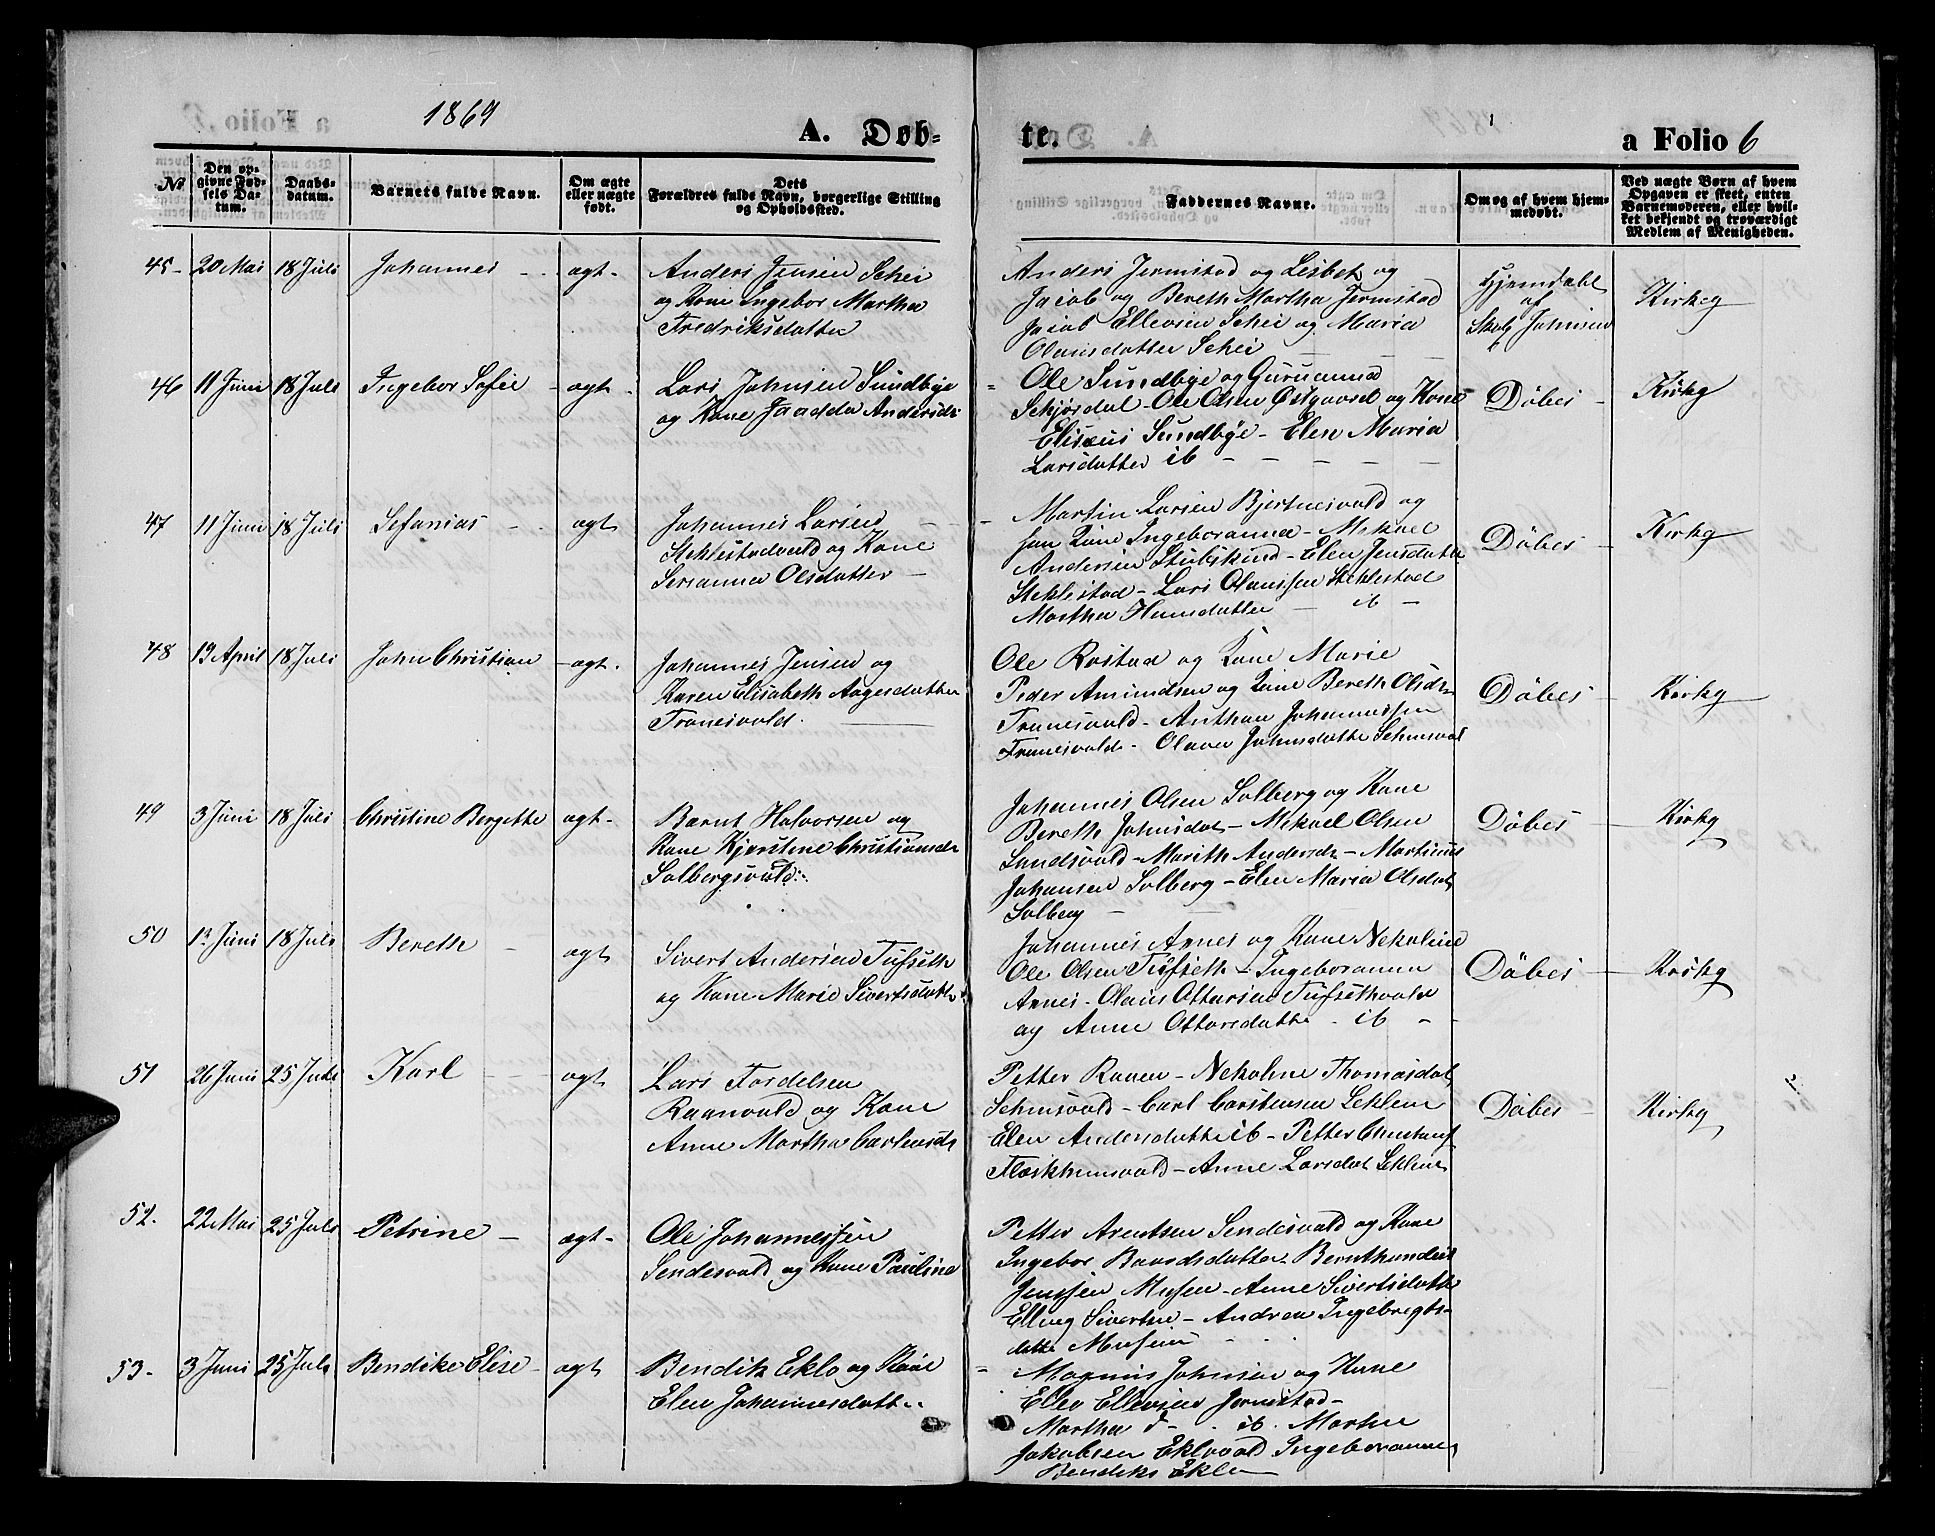 1869
A. Döb-
te.
a Folio 6
No.
Den op-
givne Fød-
sels Da-
tum.
Daabs-
datum.
Barnets fulde Navn.
Om ægte
eller uægte
født.
Dets
Forældres fulde Navn, borgerlige Stilling
og Opholdssted.
Faddernes Navne.
Om og af hvem hjem-
medøbt.
Ved uægte Børn af hvem
Opgaven er skeet, enten
Barnemoderen, eller hvil-
ket bekjendt og troværdigt
Medlem af Menigheden.
45- 20 Mai 18 Juli Johannes - agt-
Anders Jensen Schei
og Kone Ingebor Martha
Fredriksdatter
Anders Jermstad og Lisbet og
Jacob og Bereth Martha Jermstad
Jacob Ellevsen Schei og Maria
Olausdatter Schei
Hjemdøbt
af
Johnsen
Kirke
46 11 Juni 18 Juli Ingebor Sofie - agt-
Lars Johnsen Sundbye
og Kone Andersd:
Ole Sundbye og
Ole Olsen Østgaard og Kone
Elisæus Sundbye - Elen Maria
Larsdatter ib - - - -
Döbes - Kirke
47 11 Juni 18 Juli Sefanias - agt
Johannes Larsen
Steklestadvald og Kone
Serianna Olsdatter -
Martin Larsen
Kone Ingeboranna - Mekael
Andersen - Elen Jensdatter
Steklestad - Lars Olaussen Steklestad
Martha - ib -
Döbes - Kirke
48 13 April 18 Juli John Christian - agt.
Johannes Jensen og
Karen Elisabeth Aagesdatter
Tronesvald.
Ole Rostad og Kone Marie
Peder Amundsen og Kone Bereth Olsd-
Tronesvald - Anthon Johannessen
Tronesvald - Olava Johnsdatter
Döbes - Kirke
49 3 Juni 18 Juli Christine Bergette agt-
Bernt Halvorsen og
Kone Kjerstine Christiansd:
Solbergsvald.
Johannes Olsen Solberg og Kone
Bereth Johnsdat - Mekael Olsen
Sundsvald - Marith Andersd: - Martinus
Johansen Solberg - Elen Maria Olsdat
Solberg - -
Döbes - Kirke
50 12 Juni 18 Juli Bereth - agt
Sivert Andersen Tufseth
og Kone Marie Sivertsdatt
Johannes Arnes og Kone Nekoline
Ole Olsen Tufseth - Ingeboranna
Arnes - Olaus Ottersen Tufsethvald
og Anne Ottersdatter - ib - -
Döbes - Kirke
51 26 Juni 25 Juli Karl - agt
Lars Tordelsen
Raanvald og Kone
Anne Martha Carlensd:
Petter Raaen - Nekoline Thomasdat
- Carl Carstensen Leklem
Elen Andersdatter ib - Petter
- Anne Larsdat Leklem
Döbes - Kirke
52. 22 Mai 25 Juli Petrine - ægt-
Ole Johannessen
Sendesvald og Kone Pauline
Petter Arentsen Sendesvald og Kone
Ingebor Baardsdatter
Jenssen - Anne Sivertsdatter
Sivertsen - Andrea Ingebrigts-
datter
53- 3 Juni 25 Juli Bendike Elise - agt
Bendik Eklo og Kone
Elen Johannesdatt:
Magnus Johnsen og Kone
Ellevsen Jermstad -
Martha d - ib.
Jakobsen Eklovald Ingeboranna
Bendiks Eklo